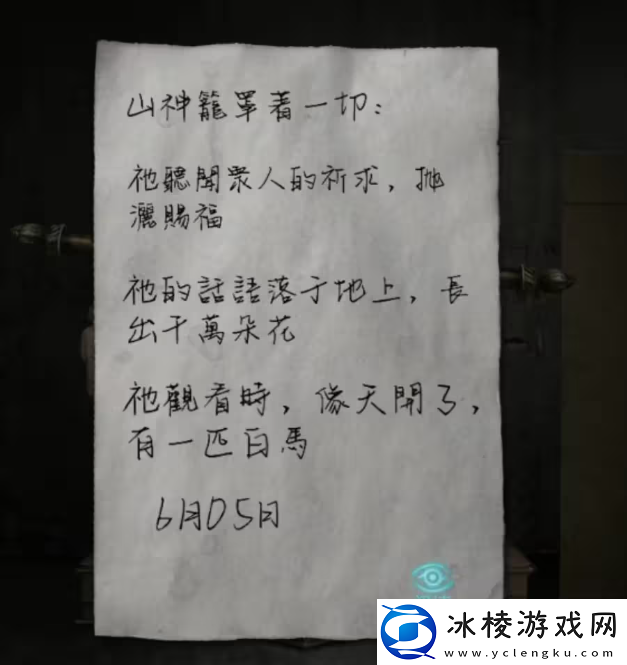 山神籠罩着一切：
祂聽聞眾人的祈求，拋
灑賜福
祂的話語落于地上，長
出千萬朵花
祂觀看時，像天開了，
有一匹白馬
6月05日
冰棱游戏网
www.yclengku.com